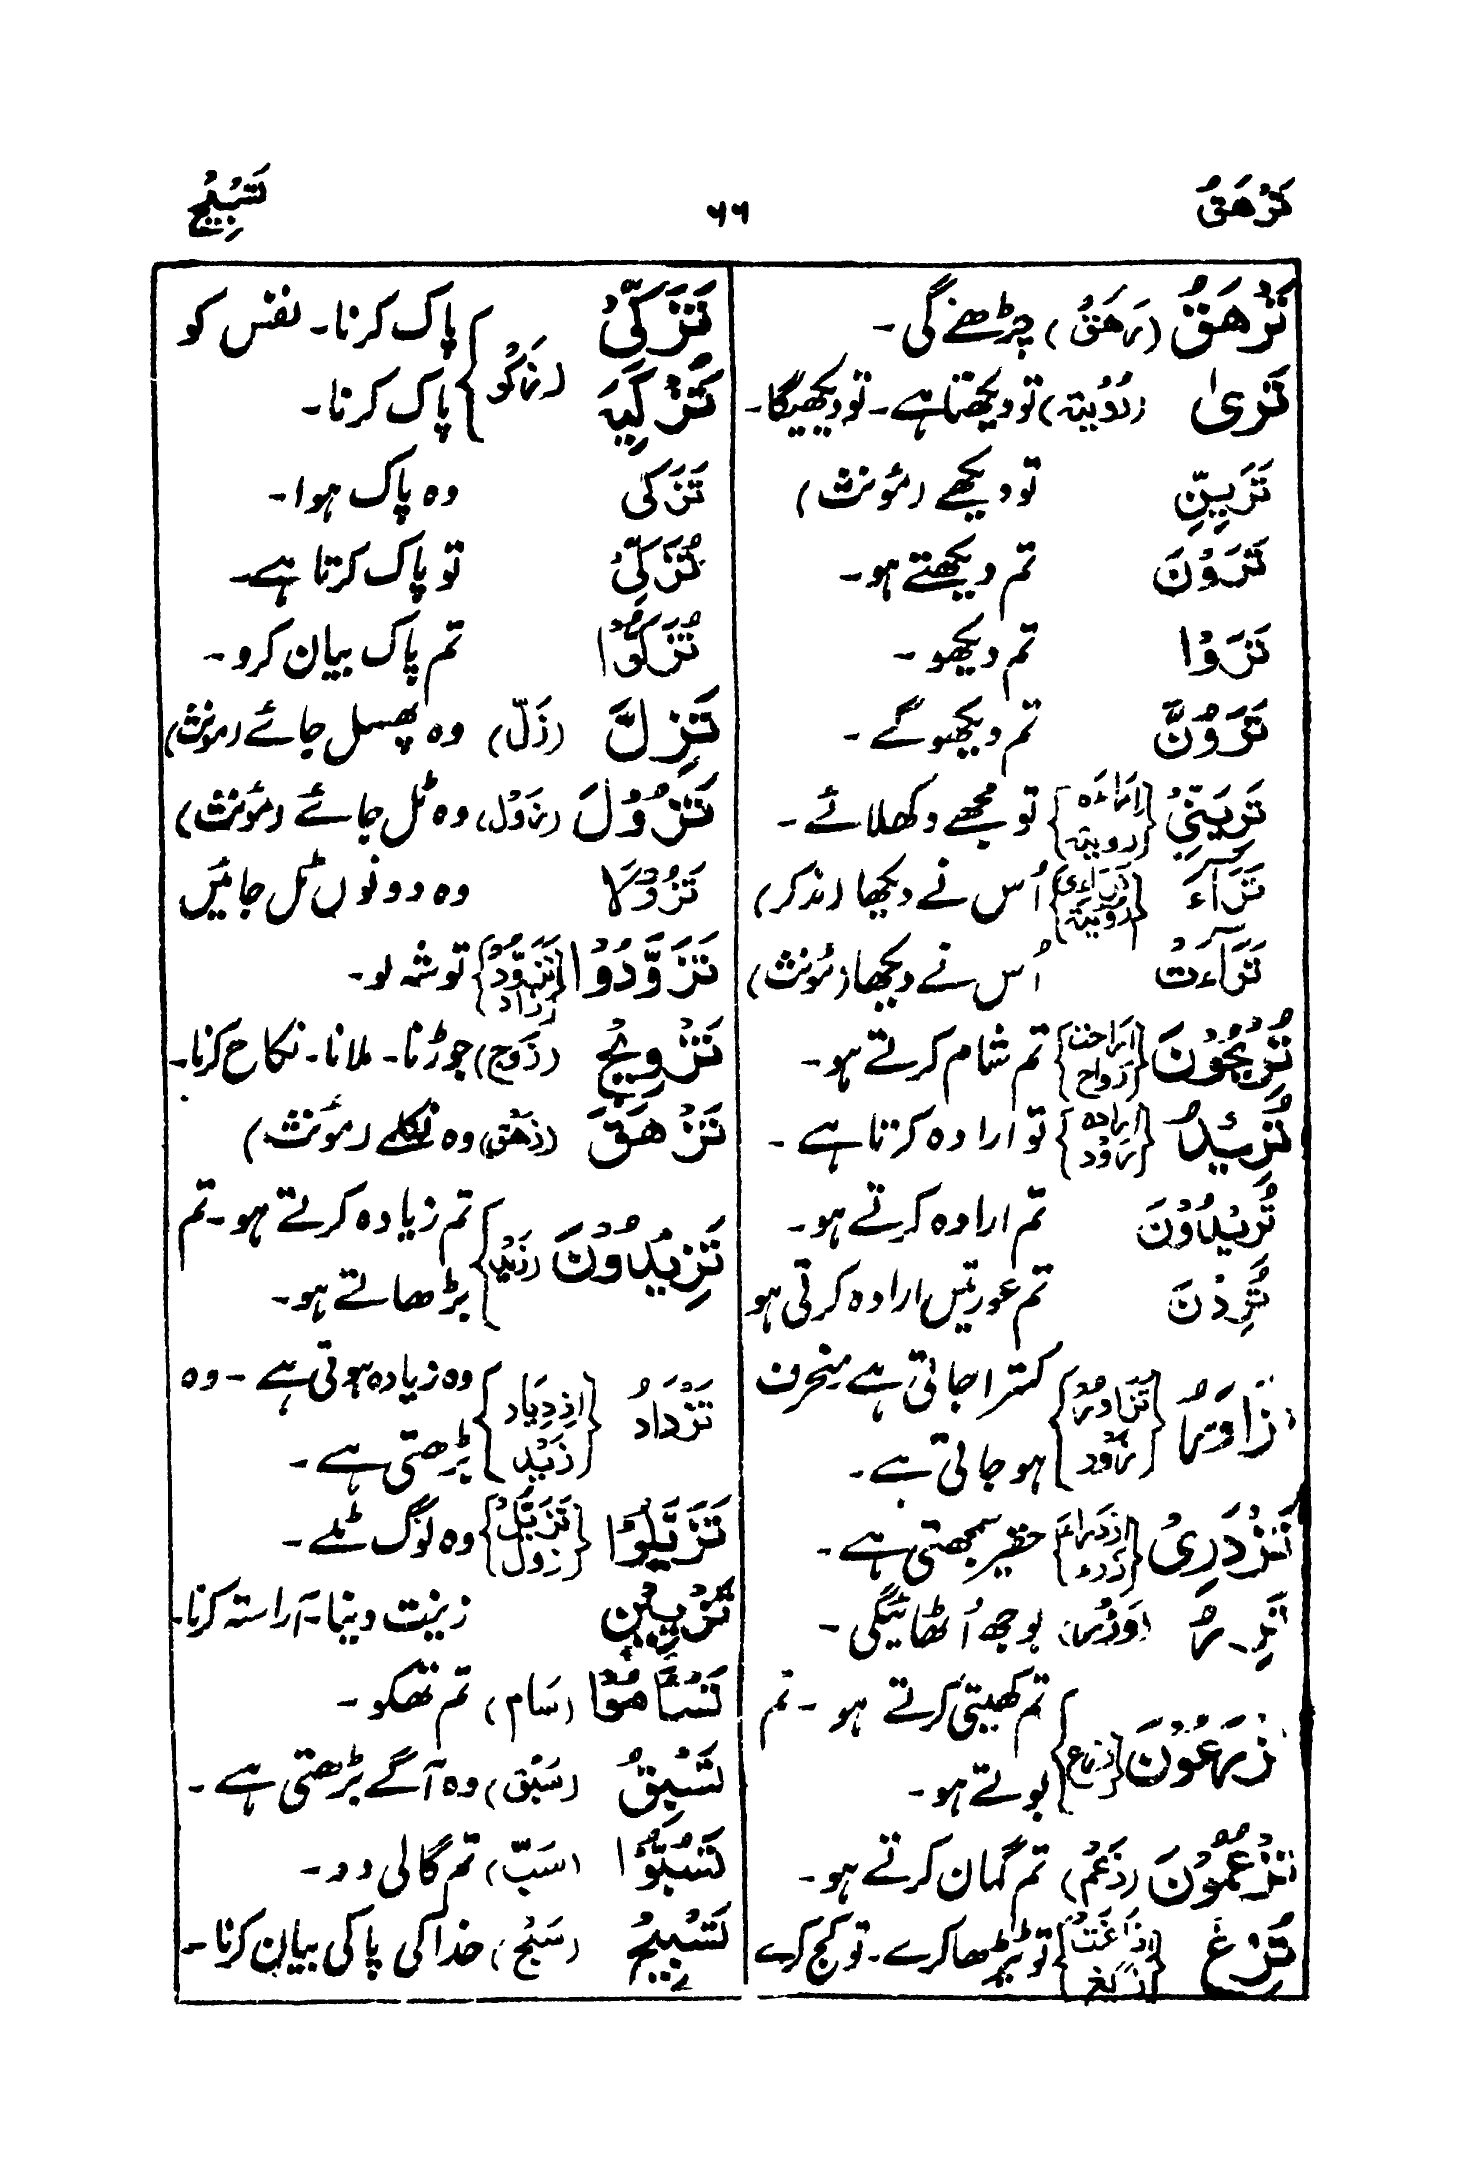 تَرْهَقُ ۶۶ تَسْبِيْحٌ
تَرْهَقُ (رَهَقٌ) چڑھے گی۔
تَرىٰ (رُؤْیَة) تو دیکھتا ہے۔ تو دیکھیگا۔
تَرَیِنِّ تو دیکھے (مؤنث)
تَرَوْنَ تم دیکھتے ہو۔
تَرَوْا تم دیکھو۔
تَرَوُنَّ تم دیکھو گے۔
تُرِیَنِّیْ {اِرَاءَہ رویة} تو مجھے دکھلائے۔
تَرَآءَ {رویة} اُس نے دیکھا (مذکر)
تَرَآءَتْ اُس نے دیکھا (مؤنث)
تُرِیْحُوْنَ {اراحت رواح} تم شام کرتے ہو۔
تُرِیْدُ {ارادہ رَوْد} تو ارادہ کرتا ہے۔
تُرِیْدُوْنَ تم ارادہ کرتے ہو۔
تُرِدْنَ تم عورتیں ارادہ کرتی ہو
زَاوَرُ {تَزَاوُر زَوْر} کترا جاتی ہے منحرف
ہو جاتی ہے۔
تَزْدَرِیْ {ازدراء زرء} حقیر سمجھتی ہے۔
تَزِرُ (وَزْر) بوجھ اُٹھائیگی۔
زْرَعُوْنَ {زرع} تم کھیتی کرتے ہو۔ تم
بوتے ہو۔
تَزْعُمُوْنَ (زَعْم) تم گمان کرتے ہو۔
تُزِغْ {اِزَاغَت زیغ} تو ٹیڑھا کرے۔ تو کج کرے
تَزَکّیْ پاک کرنا۔ نفس کو
تَزْکِیَہ (زَکْو) پاک کرنا۔
تَزَکّٰی وہ پاک ہوا۔
تُزَکِّیْ تو پاک کرتا ہے۔
تُزَکُّوْا تم پاک بیان کرو۔
تَزِلَّ (زَلّ) وہ پھسل جائے (مؤنث)
تَزُوْلَ (زَوْل) وہ ٹل جائے (مؤنث)
تَزُوْلَا وہ دونوں ٹل جائیں
تَزَوَّدُوْا {تَزَوُّد زاد} توشہ لو۔
تَزْوِیْجٌ (زَوج) جوڑنا۔ ملانا۔ نکاح کرنا۔
تَزْهَقَ (زَهْق) وہ نکلے (مؤنث)
تَزِیْدُوْنَ (زَیْد) تم زیادہ کرتے ہو۔ تم
بڑھاتے ہو۔
تَزْدَادُ {ازدِیَاد زَیْد} وہ زیادہ ہوتی ہے۔ وہ
بڑھتی ہے۔
تَزَیَّلُوْا {تَزَیُّل زول} وہ لوگ ٹلے۔
تَزْیِیْن زینت دینا۔ آراستہ کرنا۔
تَسْأَمُوْا (سَام) تم تھکو۔
تَسْبِقُ (سَبْق) وہ آگے بڑھتی ہے۔
تَسُبُّوْا (سَبّ) تم گالی دو۔
تَسْبِیْحٌ (سَبْح) خدا کی پاکی بیان کرنا۔